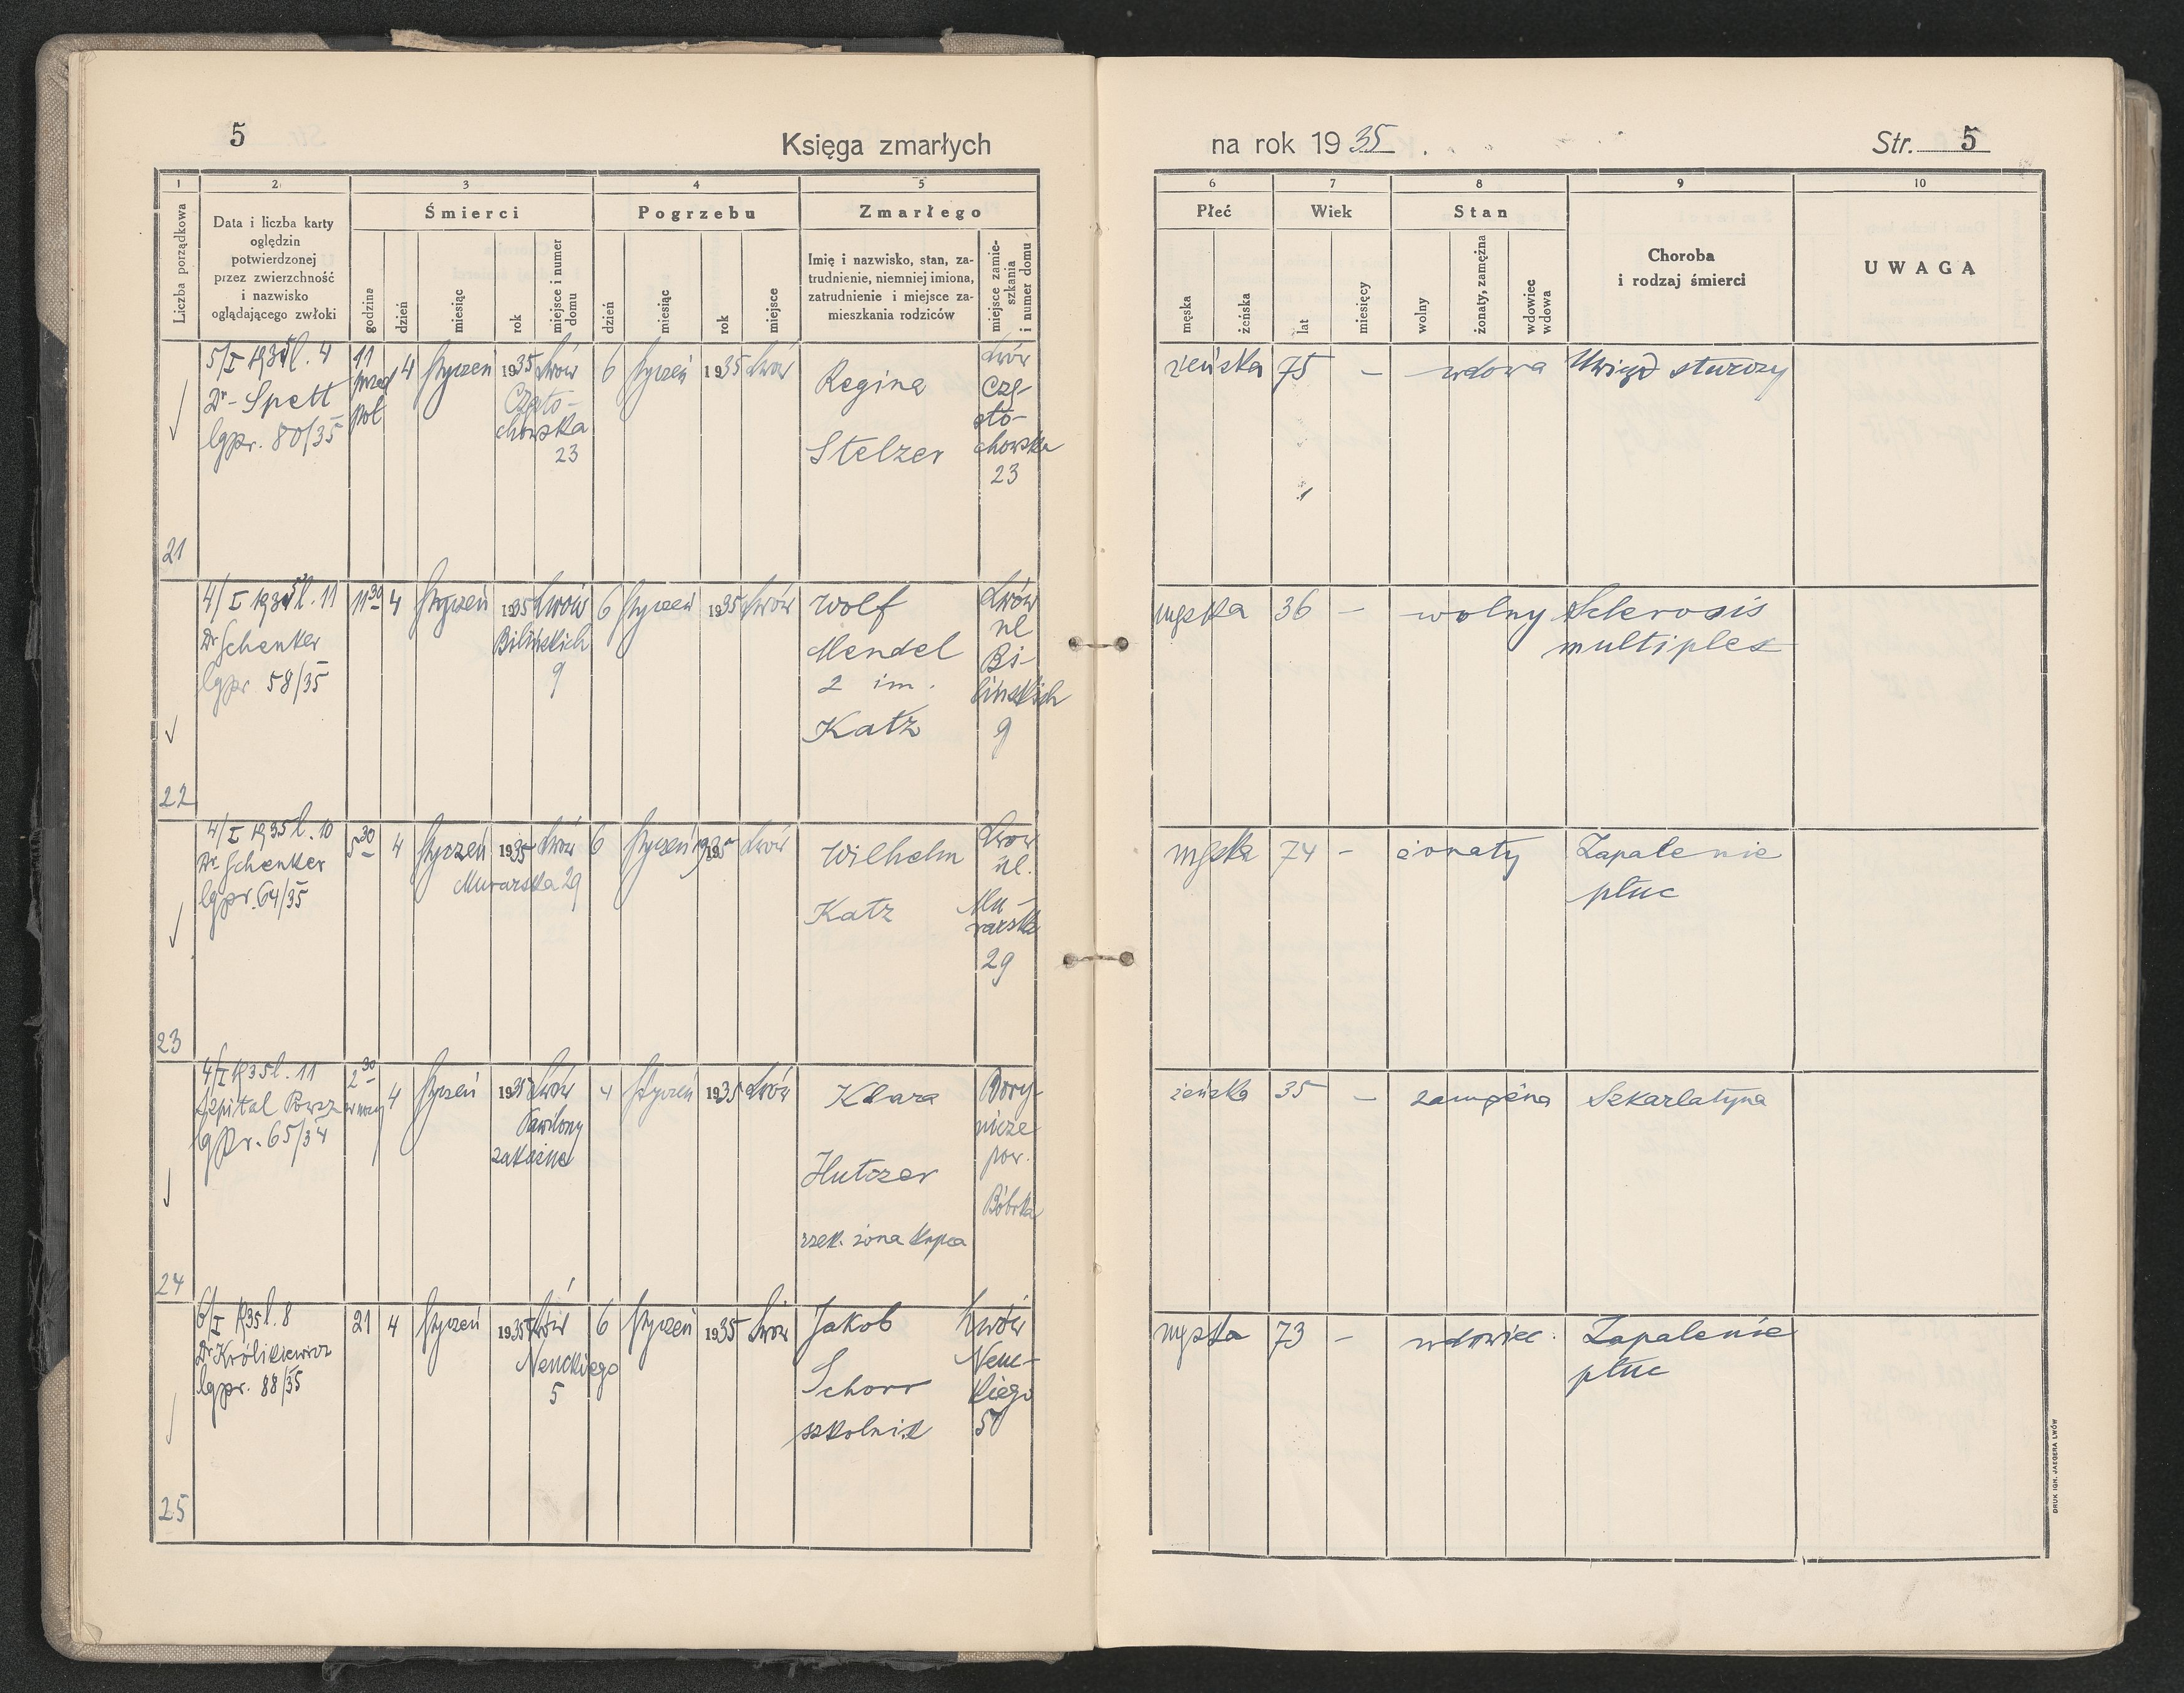 5
Księga zmarłych
na rok 1935
Str. 5
1 2 3 4 5 6 7 8 9 10
Liczba porządkowa
Data i liczba karty
oględzin
potwierdzonej
przez zwierzchność
i nazwisko
oglądającego zwłoki
Śmierci
godzina
dzień
miesiąc
rok
miejsce i numer
domu
Pogrzebu
dzień
miesiąc
rok
miejsce
Zmarłego
Imię i nazwisko, stan, za-
trudnienie, niemniej imiona,
zatrudnienie i miejsce za-
mieszkania rodziców
miejsce zamie-
szkania
i numer domu
Płeć
męska
żeńska
Wiek
lat
miesięcy
Stan
wolny
żonaty, zamężna
wdowiec
wdowa
Choroba
i rodzaj śmierci
UWAGA
21
5/I 1935 l. 4
Dr Spett
lgpr. 80/35
11
przed
poł
4 styczeń 1935 Lwów
Często-
chowska
23
6 styczeń 1935 Lwów
Regina
Stelzer
Lwów
Czę-
sto-
chowska
23
żeńska 75 – wdowa Uwiąd starczy
22
4/I 1935 l. 11
Dr Schenker
lgpr 58/35
11 30 4 styczeń 1935 Lwów
Bilińskich
9
6 styczeń 1935 Lwów
Wolf
Mendel
2 im.
Katz
Lwów
ul
Bi-
lińskich
9
męska 36 – wolny Sklerosis
multiplex
23
4/I 1935 l. 10
Dr Schenker
lgpr. 64/35
5 30 4 styczeń 1935 Lwów
Murarska 29
6 styczeń 1935 Lwów
Wilhelm
Katz
Lwow
ul.
Mu-
rarska
29
męska 74 – żonaty Zapalenie
płuc
24
4/I 1935 l. 11
Szpital Powsz
lgpr. 65/34
2 30
w nocy
4 styczeń 1935 Lwów
Pawilony
zakaźne
4 styczeń 1935 Lwów
Klara
Hutzer
rzek. żona kupca
Bory-
nicze
pow.
Bóbrka
żeńska 35 – zamężna Szkarlatyna
25
6/I 1935 l. 8
Dr Królikiewicz
lgpr. 88/35
21 4 styczeń 1935 Lwów
Nenckiego
5
6 styczeń 1935 Lwów
Jakob
Schorr
szkolnik
Lwów
Nenc-
kiego
5
męska 73 – wdowiec Zapalenie
płuc
DRUK IGN. JAEGERA LWÓW